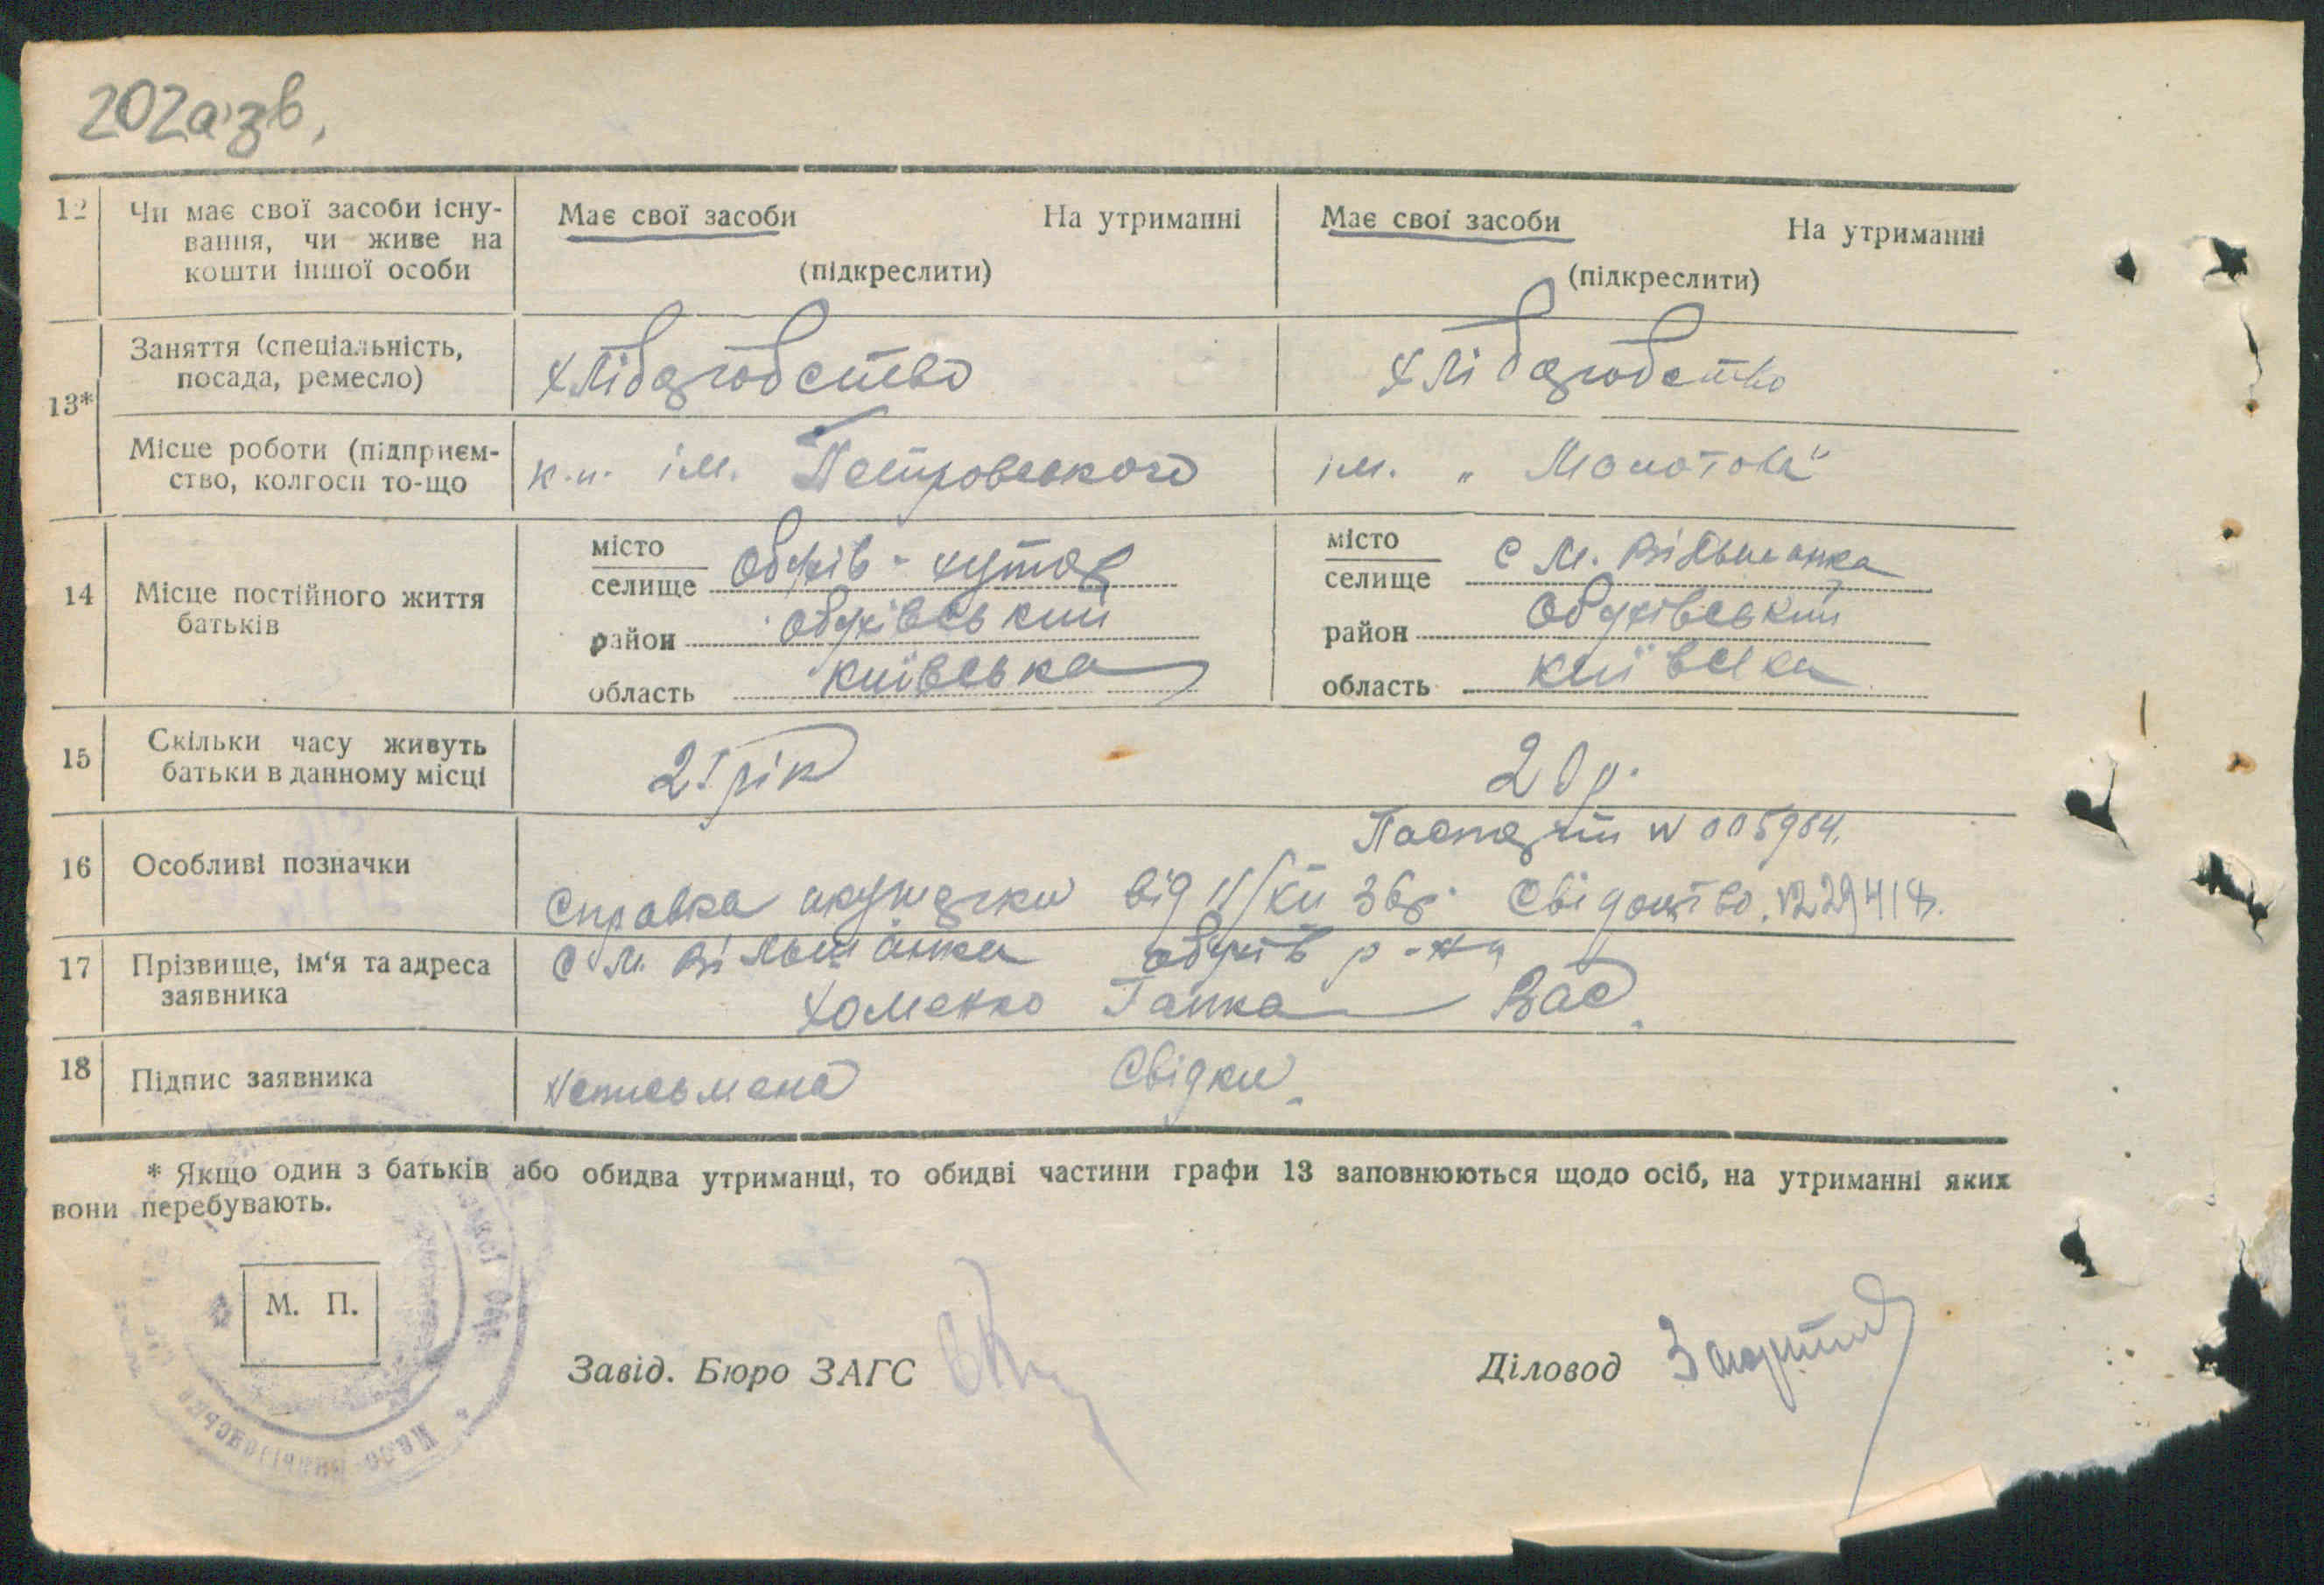 202а зв.
12 Чи має свої засоби існу-
вання, чи живе на
кошти іншої особи
Має свої засоби На утриманні
(підкреслити)
Має свої засоби На утриманні
(підкреслити)
13*
Заняття (спеціальність,
посада, ремесло)
хліборобство
хліборобство
Місце роботи (підприєм-
ство, колгосп то-що
ім. Петровського
ім. „Молотова"
14 Місце постійного життя
батьків
місто
селище Обухів-хутор
район обухівський
область київська
місто
селище с М. Вільшанка
район Обухівський
область київська
15 Скільки часу живуть
батьки в данному місці
21 рік
20 р.
16 Особливі позначки
Паспорт № 005904.
Справка акушерки від 11/XII 36р. Свідоцтво
17 Прізвище, ім'я та адреса
заявника
с М. Вільшанка обухів р-на
Хоменко Гапка Вас.
18 Підпис заявника
неписьмена Свідки
* Якщо один з батьків або обидва утриманці, то обидві частини графи 13 заповнюються щодо осіб, на утриманні яких
вони перебувають.
М. П.
Завід. Бюро ЗАГС
Діловод